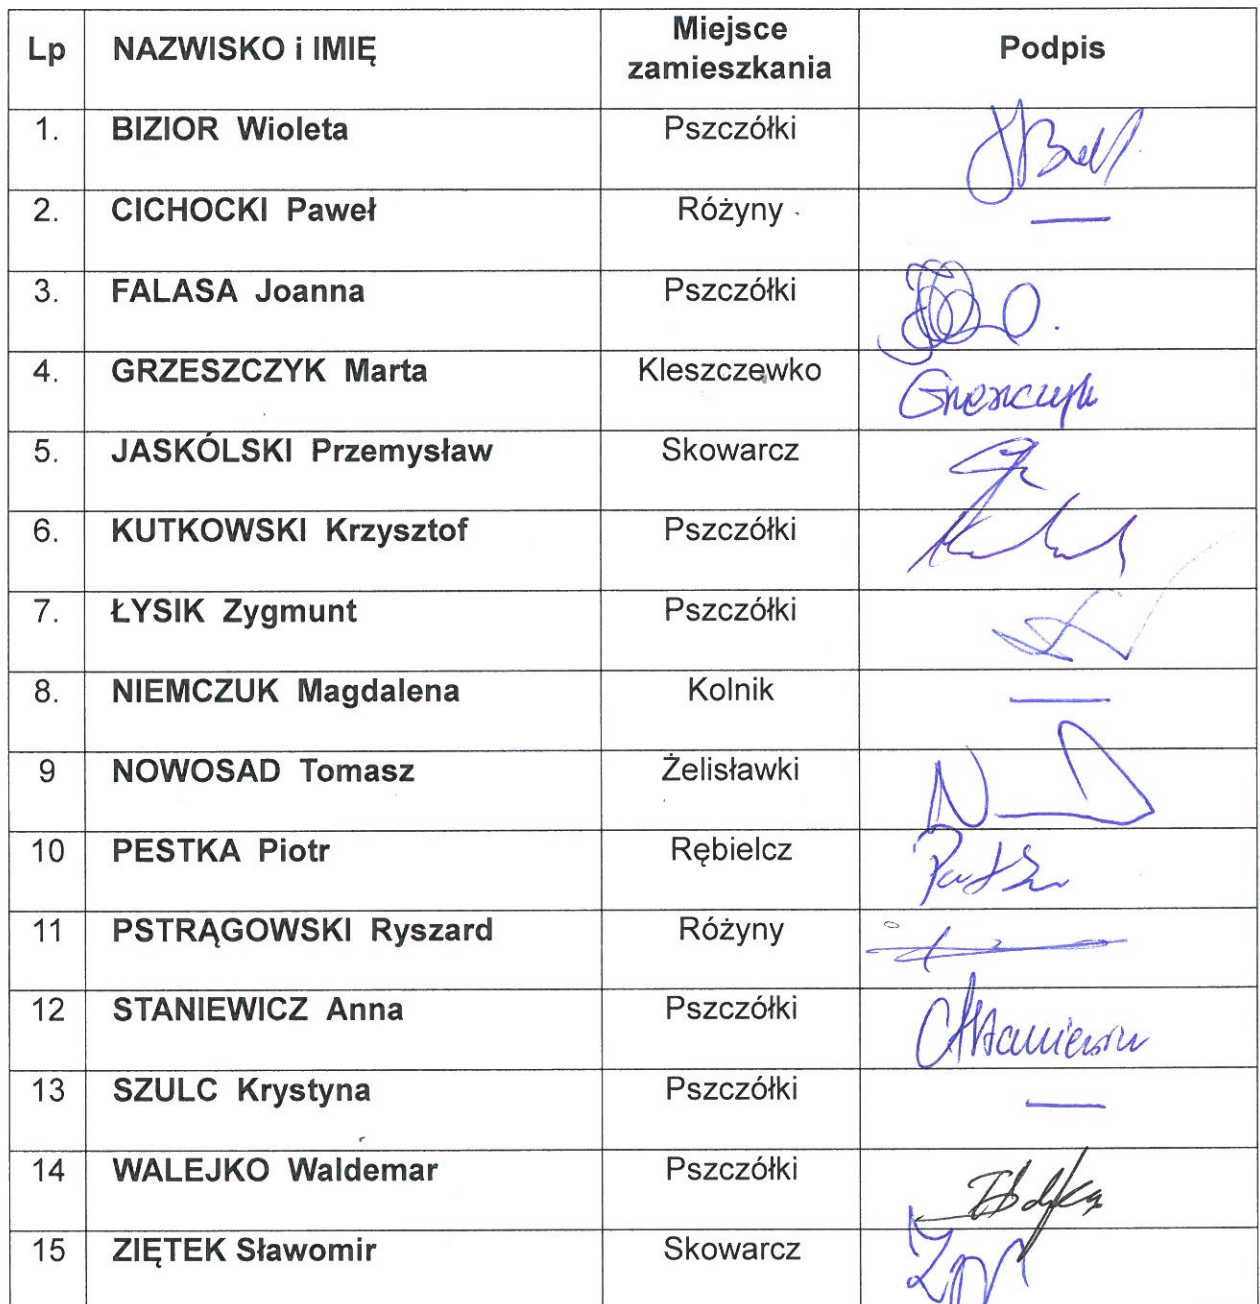 Lp NAZWISKO i IMIĘ Miejsce zamieszkania Podpis
1. BIZIOR Wioleta Pszczółki
2. CICHOCKI Paweł Różyny —
3. FALASA Joanna Pszczółki
4. GRZESZCZYK Marta Kleszczewko
5. JASKÓLSKI Przemysław Skowarcz
6. KUTKOWSKI Krzysztof Pszczółki
7. ŁYSIK Zygmunt Pszczółki
8. NIEMCZUK Magdalena Kolnik —
9 NOWOSAD Tomasz Żelisławki
10 PESTKA Piotr Rębielcz
11 PSTRĄGOWSKI Ryszard Różyny
12 STANIEWICZ Anna Pszczółki
13 SZULC Krystyna Pszczółki —
14 WALEJKO Waldemar Pszczółki
15 ZIĘTEK Sławomir Skowarcz